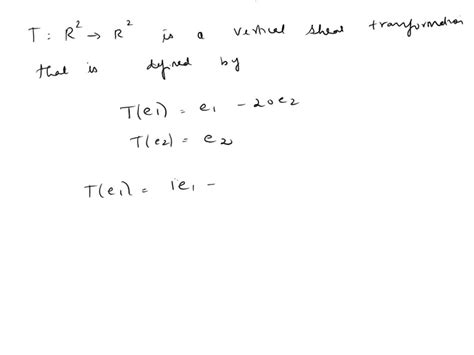 T : R² → R² is a vertical shear transformation
that is defined by
T(e₁) = e₁ - 20e₂
T(e₂) = e₂
T(e₁) = 1e₁ -